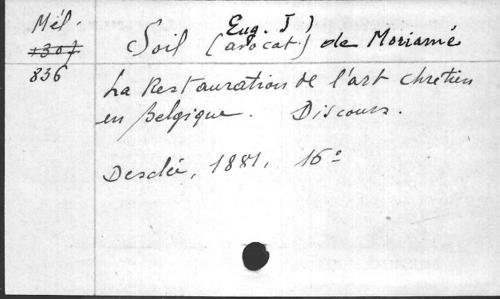 Mél.
1301
836
Eug. J)
Soil (avocat.) de Moriamé
La Restauration de l'art chrétien
en Belgique. Discours.
Desclée, 1881, 16°